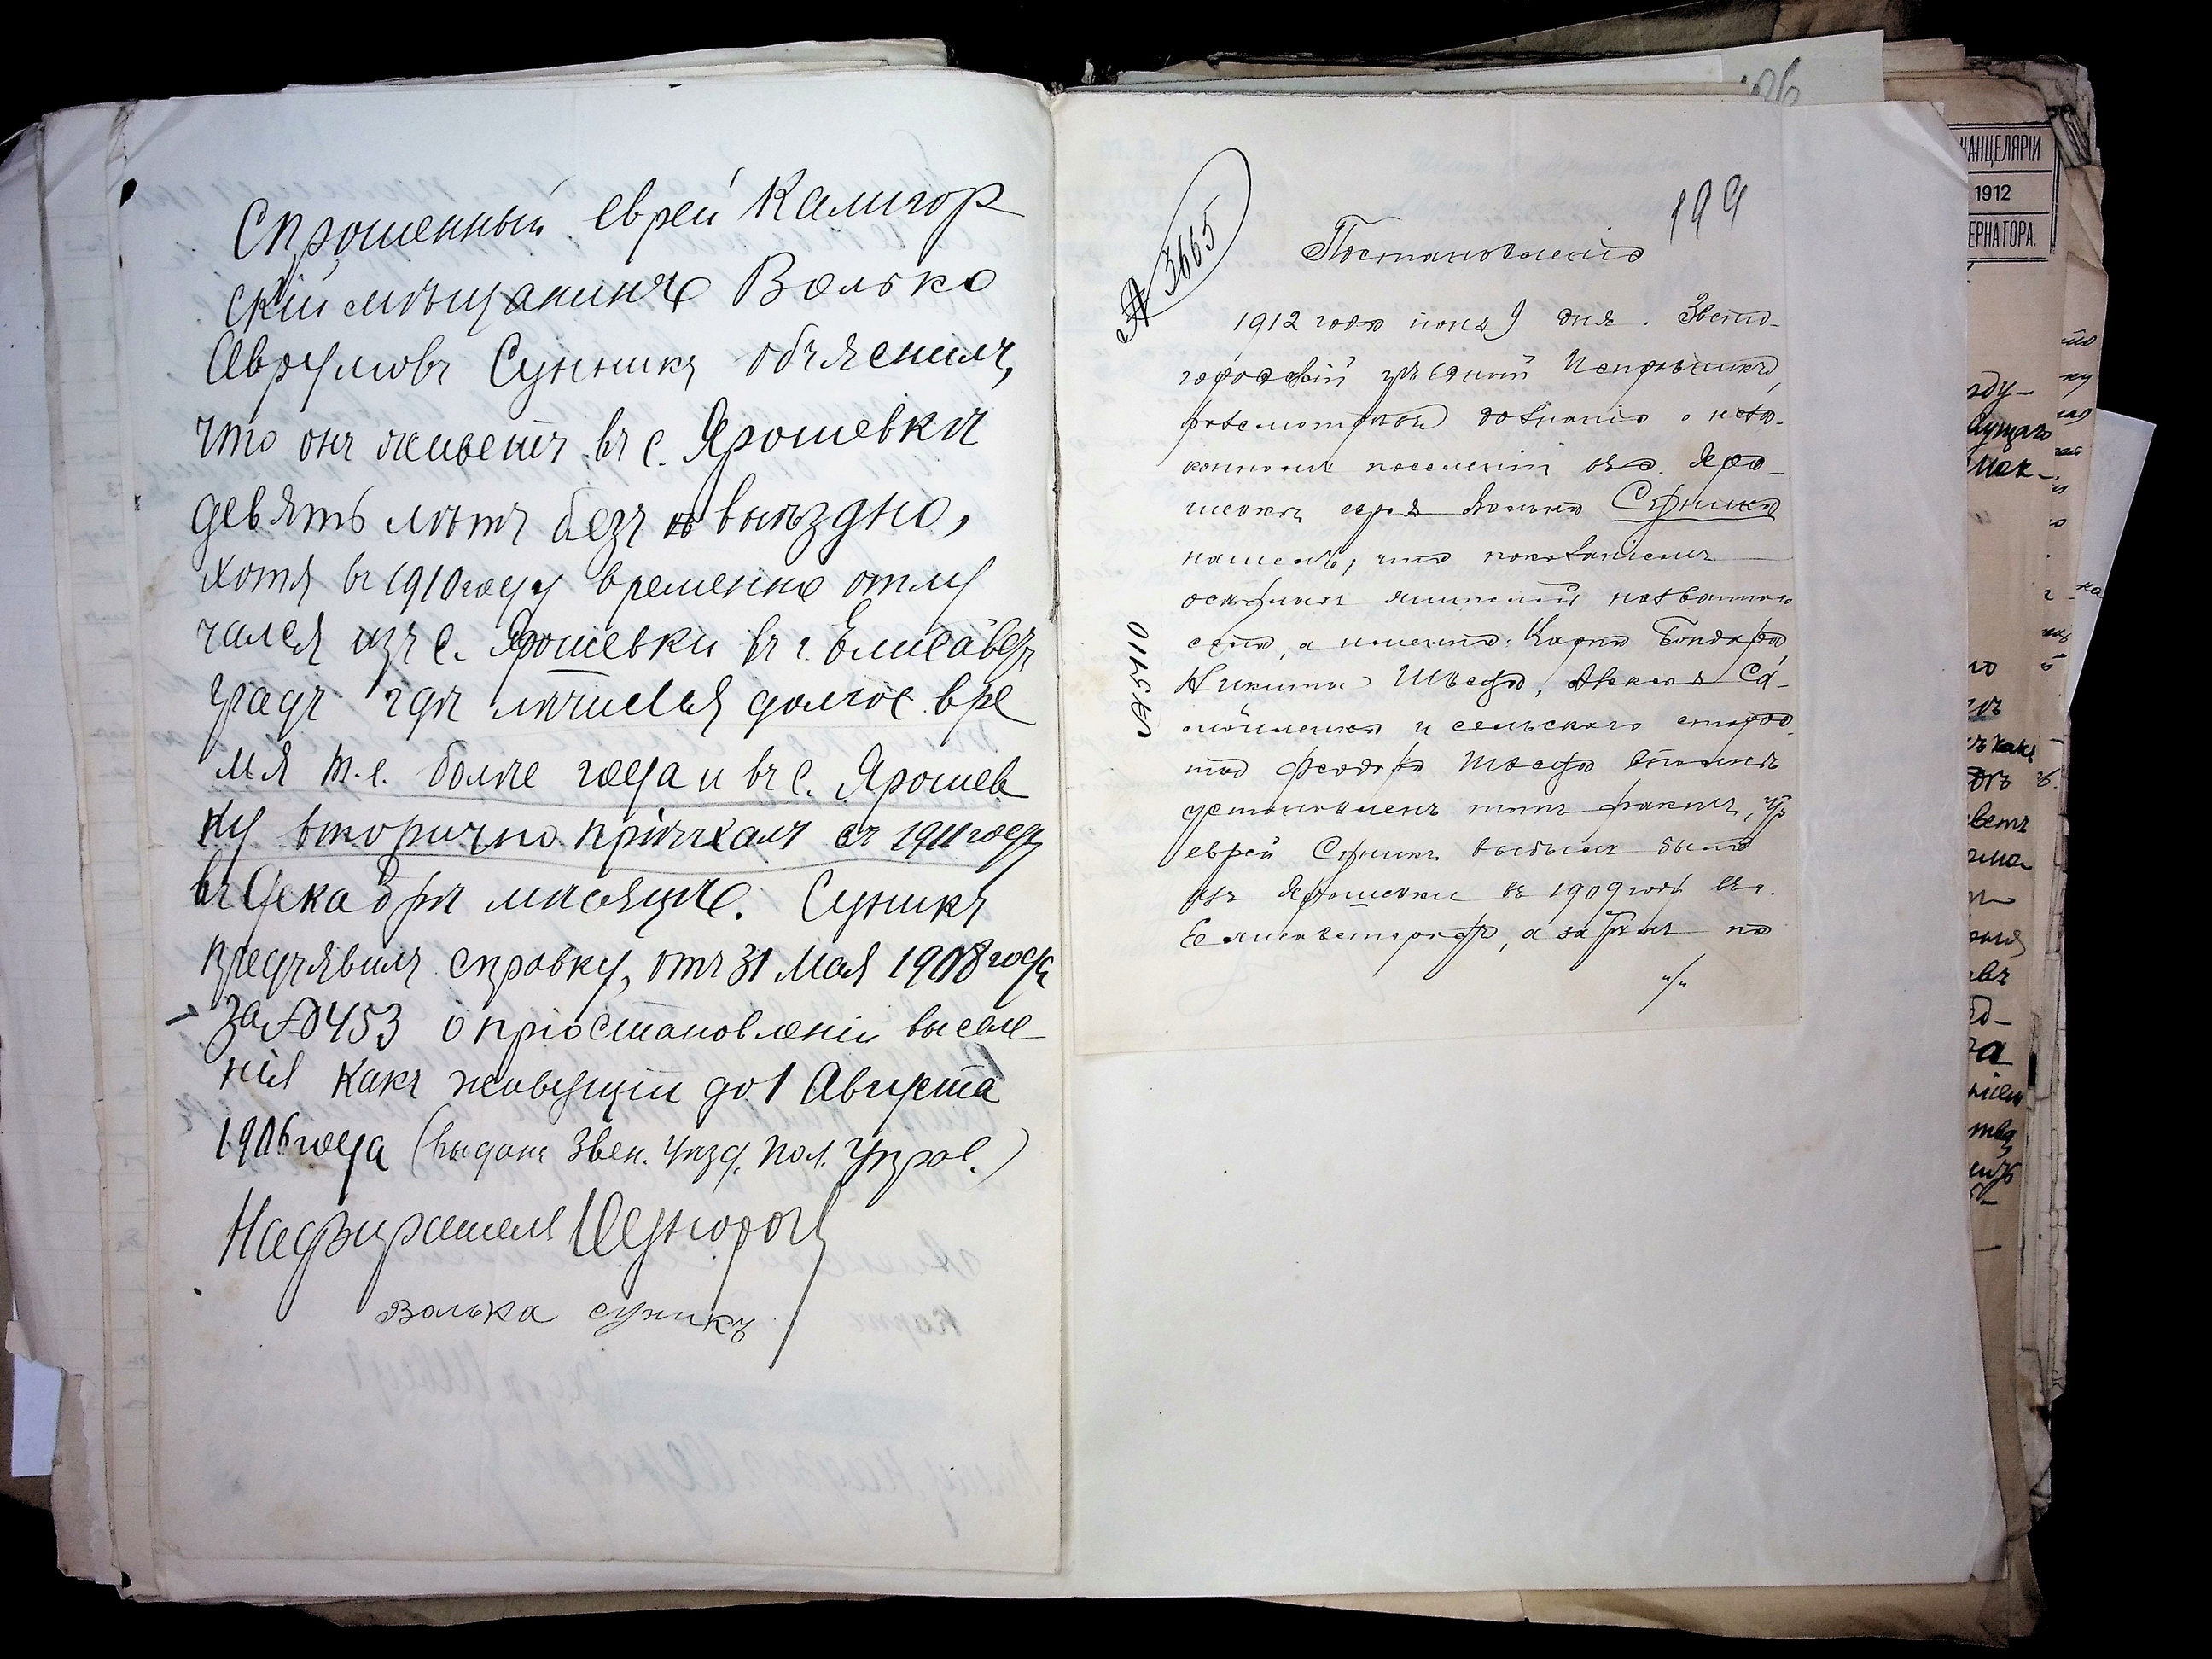 Спрошенный еврей Калигор
скій мѣщанинъ Волько
Аврумовъ Суникъ объяснилъ,
что онъ живетъ въ с. Ярошевкѣ
девять лѣтъ безъ выѣздно,
хотя въ 1910 году временно отлу
чался изъ с. Ярошевки въ г. Елисавет
градъ гдѣ лѣчился долгое вре
мя т.е. болѣе года и въ с. Ярошев
ку вторично пріѣхалъ съ 1911 года
въ Декабрѣ мѣсяцѣ. Суникъ
предъявилъ справку, отъ 31 Мая 1908 года
за № 453 о пріостановленіи выселе
нія какъ живущій до 1 Августа
1906 года (выдана Звен. Уѣзд. Пол. Управ.)
Надзиратель
Волька суникъ
106
199
№ 3665
Постановленіе
1912 года іюня 9 дня. Звени-
городскій уѣздный Исправникъ,
разсмотрѣвъ дознаніе о неза-
конномъ поселеніи въ с. Яро-
шевкѣ еврея Волько Суника
нашелъ, что показаніемъ
осѣдлыхъ жителей названнаго
села, а именно: Карпа Бондаря
Никиты Швеца, Са-
мойленка и сельскаго старос
ты Феодора Швеца вполнѣ
установленъ тотъ фактъ, что
еврей Суникъ выбылъ было
изъ Ярошевки въ 1909 году въ г.
Елисаветградъ, а затѣмъ по
КАНЦЕЛЯРІИ
1912
ЕРНАТОРА.